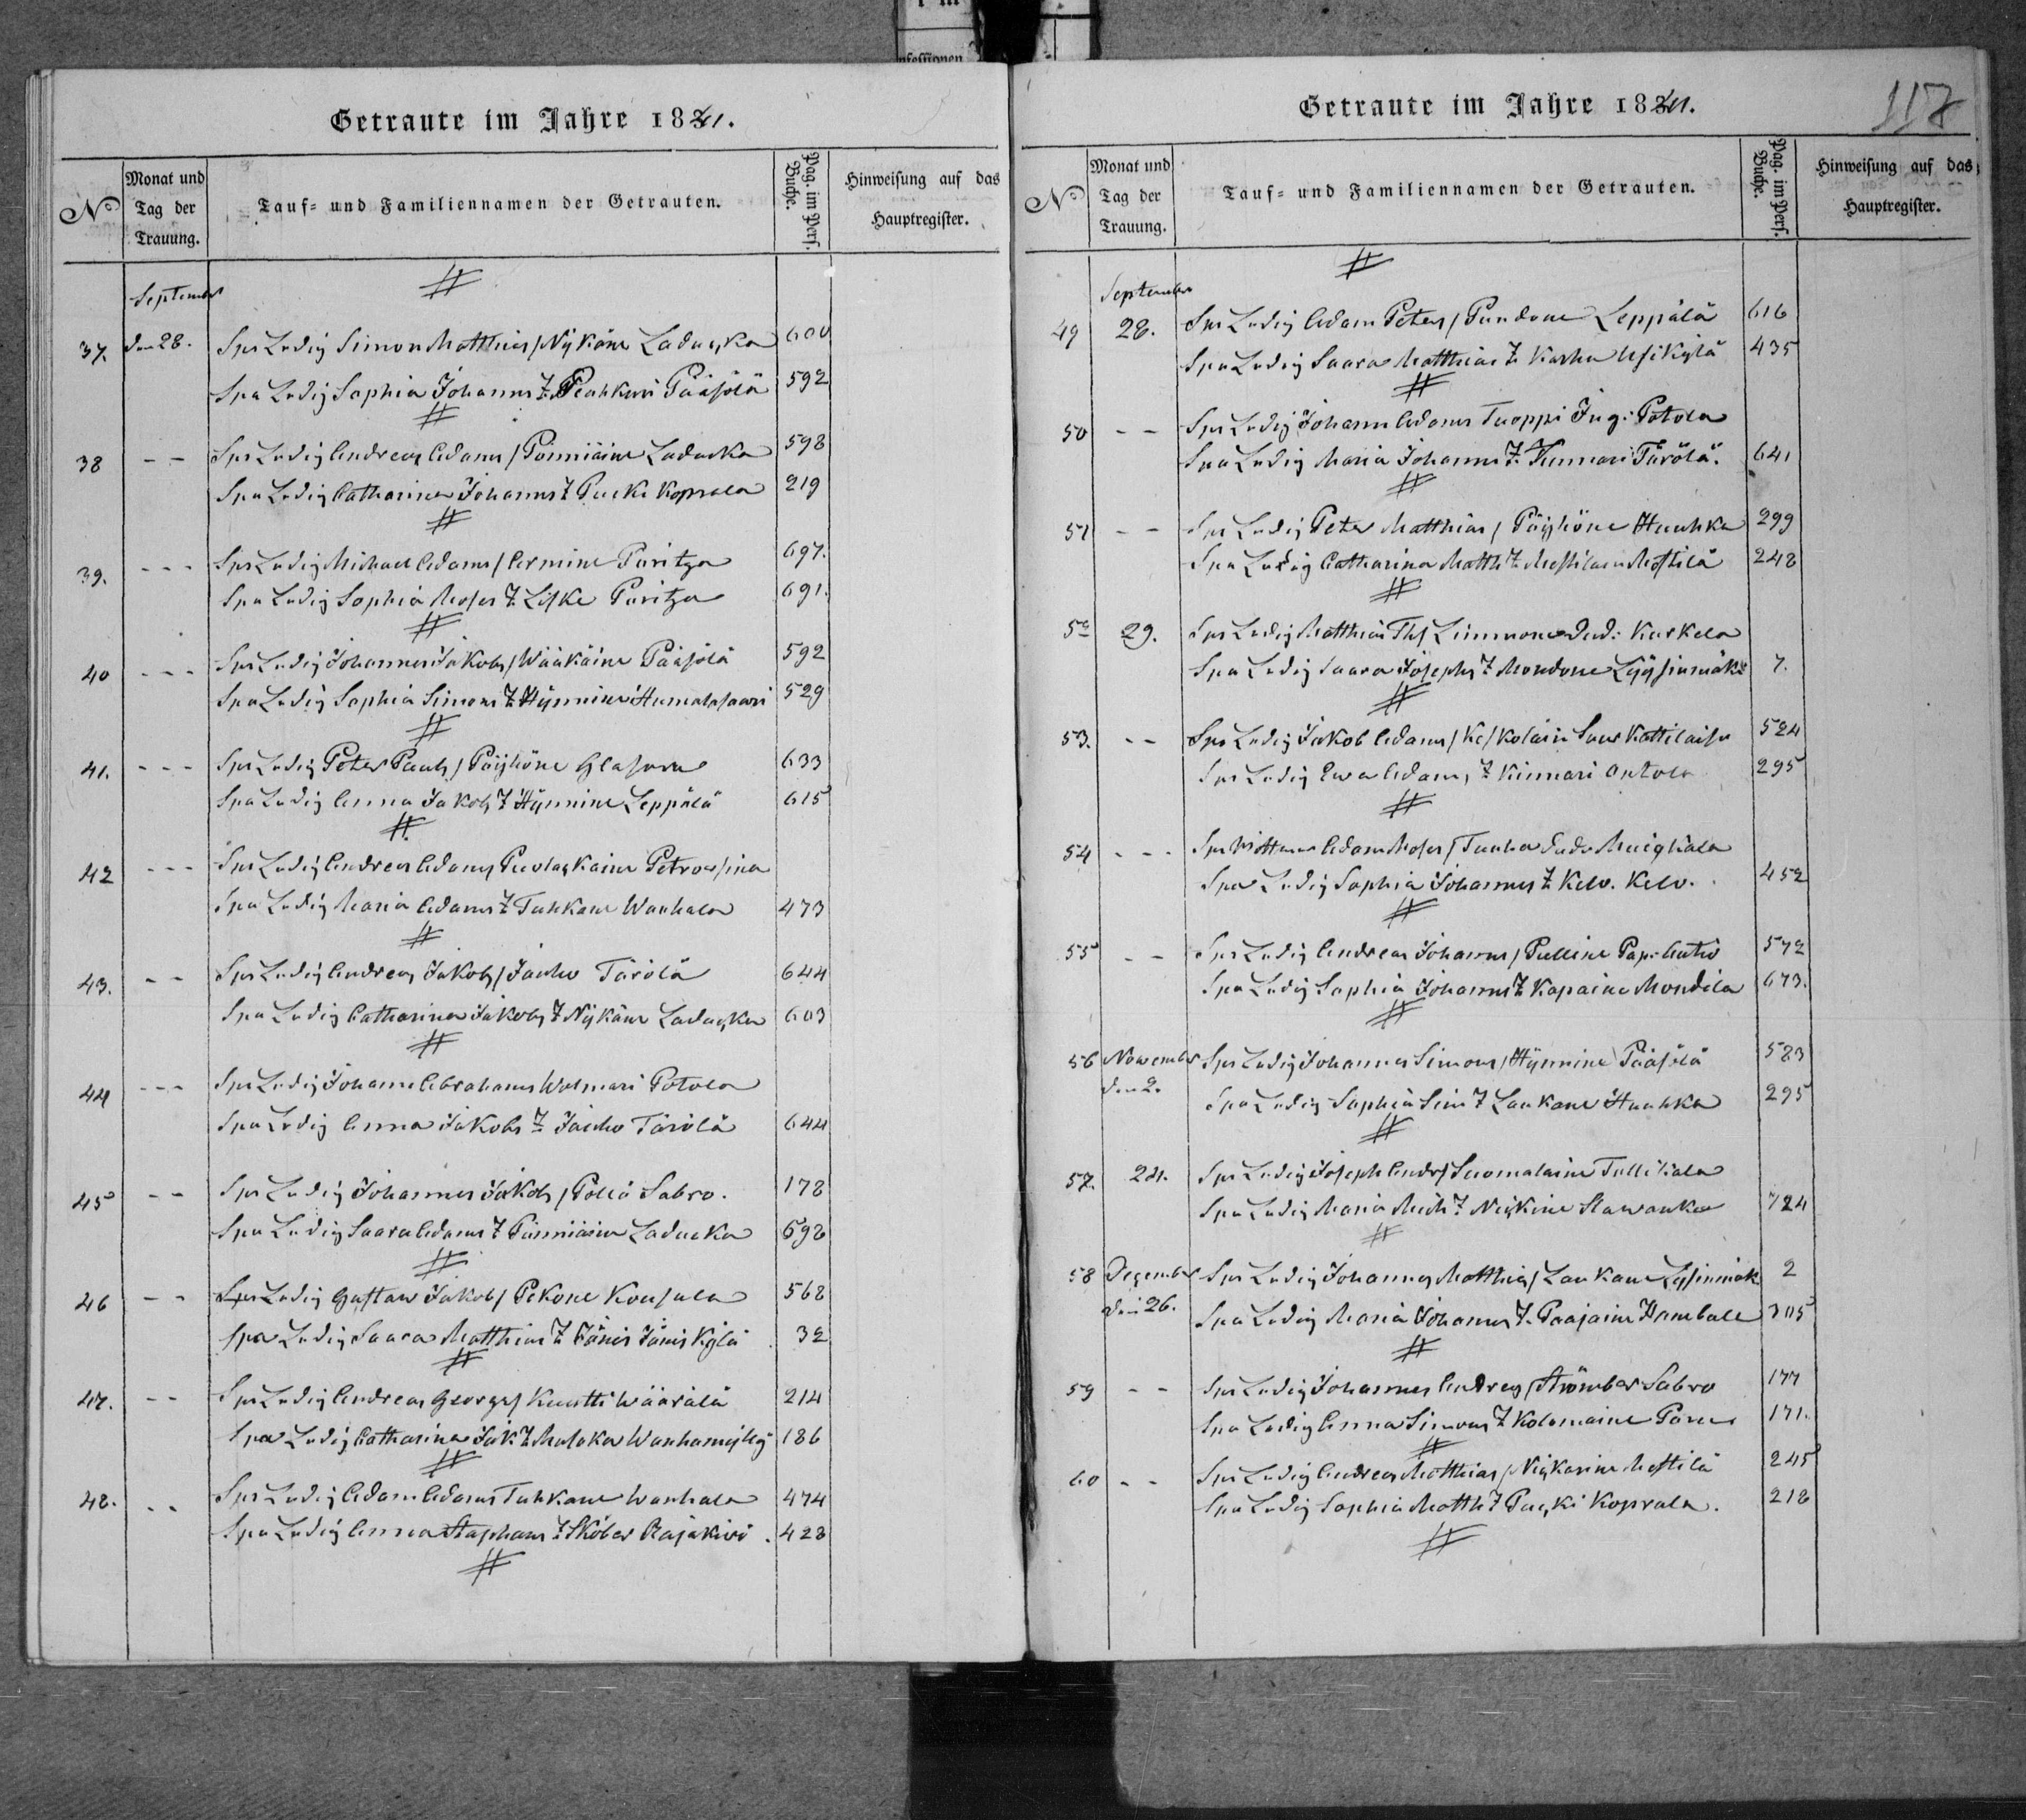 Getraute im Jahre 1841.
No
Monat und Tag der Trauung.
Tauf- und Familiennamen der Getrauten.
Pag. im Pers. Buche.
Hinweisung auf das Hauptregister.
September
37. den 28. Sps Ledig Simon Matthias/ Nykäne Laduska 600
Spa Ledig Sophia Johanns T. Peahkuri Pääsölä 592
38 - - Sps Ledig Andreas Adams/ Pönniäine Laduska 598
Spa Ledig Catharina Johanns T Pucki Koprala 219
39. - - - Sps Ledig Michael Adams/ Armine Puritza 697.
Spa Ledig Sophia Moses T. Liske Puritza 691.
40 - - - Sps Ledig Johannes Jakobs/ Wääkäine Pääsölä 592
Spa Ledig Sophia Simons T Hynnine Humalasaari 529
41. - - - Sps Ledig Peter Pauls/ Pöyhöne 633
Spa Ledig Anna Jakobs T Hynnine Leppälä 615
42 - - - Sps Ledig Andreas Adams Petrowsina
Spa Ledig Maria Adams T Tuhkane Wanhala 473
43. - - Sps Ledig Andreas Jakobs/ Jäuho Tärölä 644
Spa Ledig Catharina Jakobs T Nykäne Laduska 603
44 - - - Sps Ledig Johann Abrahams Wolmari Potola
Spa Ledig Anna Jakobs T Jäuho Tärölä 644
45 - - Sps Ledig Johannes Jakobs/ Pöllö Sabro. 178
Spa Ledig Saara Adams T Pönniäine Laduska 598
46 - - Sps Ledig Gustaw Jakobs/ Pekone Konsula 568
Spa Ledig Saara Matthias T Jänis Jänis Kylä 32
47. - - Sps Ledig Andreas Georgs/ Kuutti Wäärälä 214
Spa Ledig Catharina Jak. T Musaka Wanhamyllÿ 186
48. - - Sps Ledig Adam Adams Tuhkane Wanhala 474
Spa Ledig Anna Staphans T Sköber Rajakivi. 423
118
Getraute im Jahre 1841.
No
Monat und Tag der Trauung.
Tauf- und Familiennamen der Getrauten.
Pag. im Pers. Buche.
Hinweisung auf das Hauptregister.
September
49 28. Sps Ledig Adam Peters/ Pundane Leppälä 616
Spa Ledig Saara Matthias T. Karhu UsiKylä 435
50 - - Sps Ledig Johann Adams Tuoppi Ing. Potola
Spa Ledig Maria Johanns T. Kunnari Tärölä. 641
51 - - Sps Ledig Peter Matthias/ Pöyhöne Huuhka 299
Spa Ledig Catharina Matth T Mestilain Mestilä 248
52 29. Sps Ledig Matthias Ths/ Limmone Dud. Karkela
Spa Ledig Saara Josephs T Mondone Lyysinmäki 7.
53. - - Sps Ledig Jakob Adams/ Kattilaisu 524
Sps Ledig Ewa Adams T Kinnari Ontola 295
54 - - - Sps Wittwer Adam Moses/ Tauha Muighala
Spa Ledig Sophia Johannes T Kelv. Kelv. 452
55 - - Sps Ledig Andreas Johanns/ Pulline 572
Spa Ledig Sophia Johanns T Kapaine Mondila 673.
56 November den 2. Sps Ledig Johannes Simons/ Hynnine Pääsölä 583
Spa Ledig Sophia Sim T Laukane Huuhka 295
57. 24. Sps Ledig Joseph Andrs/ Suomalaine Tullikala
Spa Ledig Maria Mich T Slawanka 724
58 Dezember den 26. Sps Ledig Johannes Matthias/ Laukane Lysinmäk 2
Spa Ledig Maria Johanns T. Paajaine Hambale 305
59 - - Sps Ledig Johannes Andreas/ Strömber Sabro 177
Spa Ledig Anna Simons T Kolomaine 171.
60 - - Sps Ledig Andreas Matthias/ Mestilä 245
Spa Ledig Sophia Matth T Pucki Koprala. 218